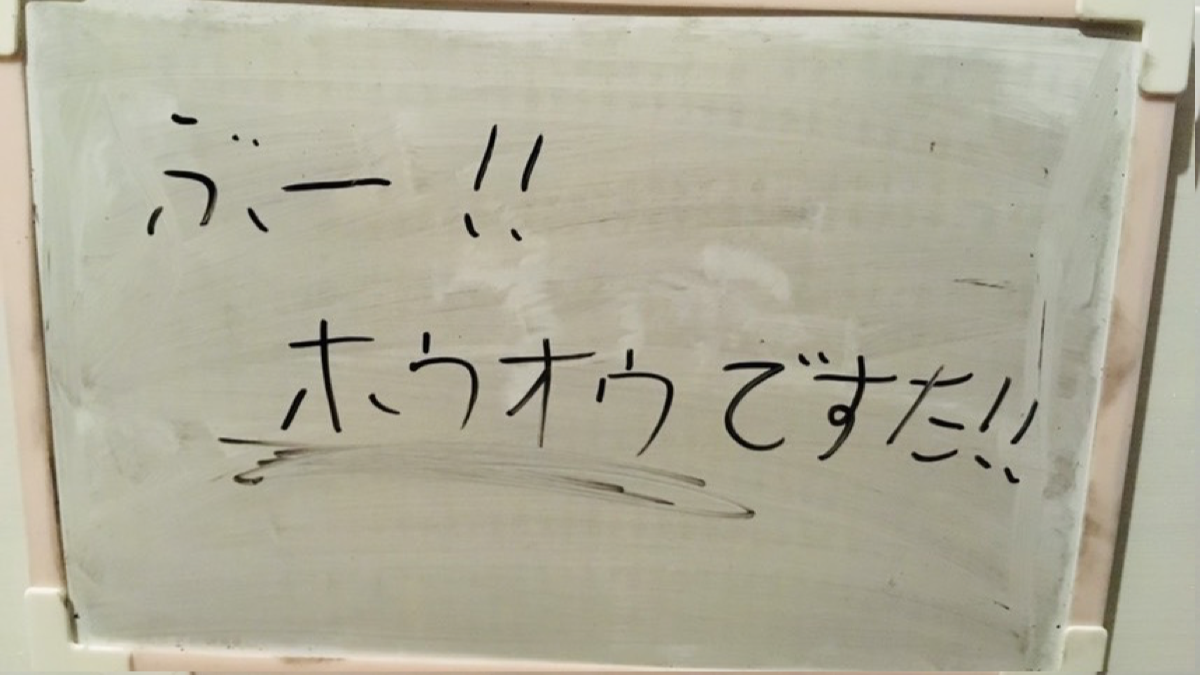 ぶー!!
ホウオウですた!!